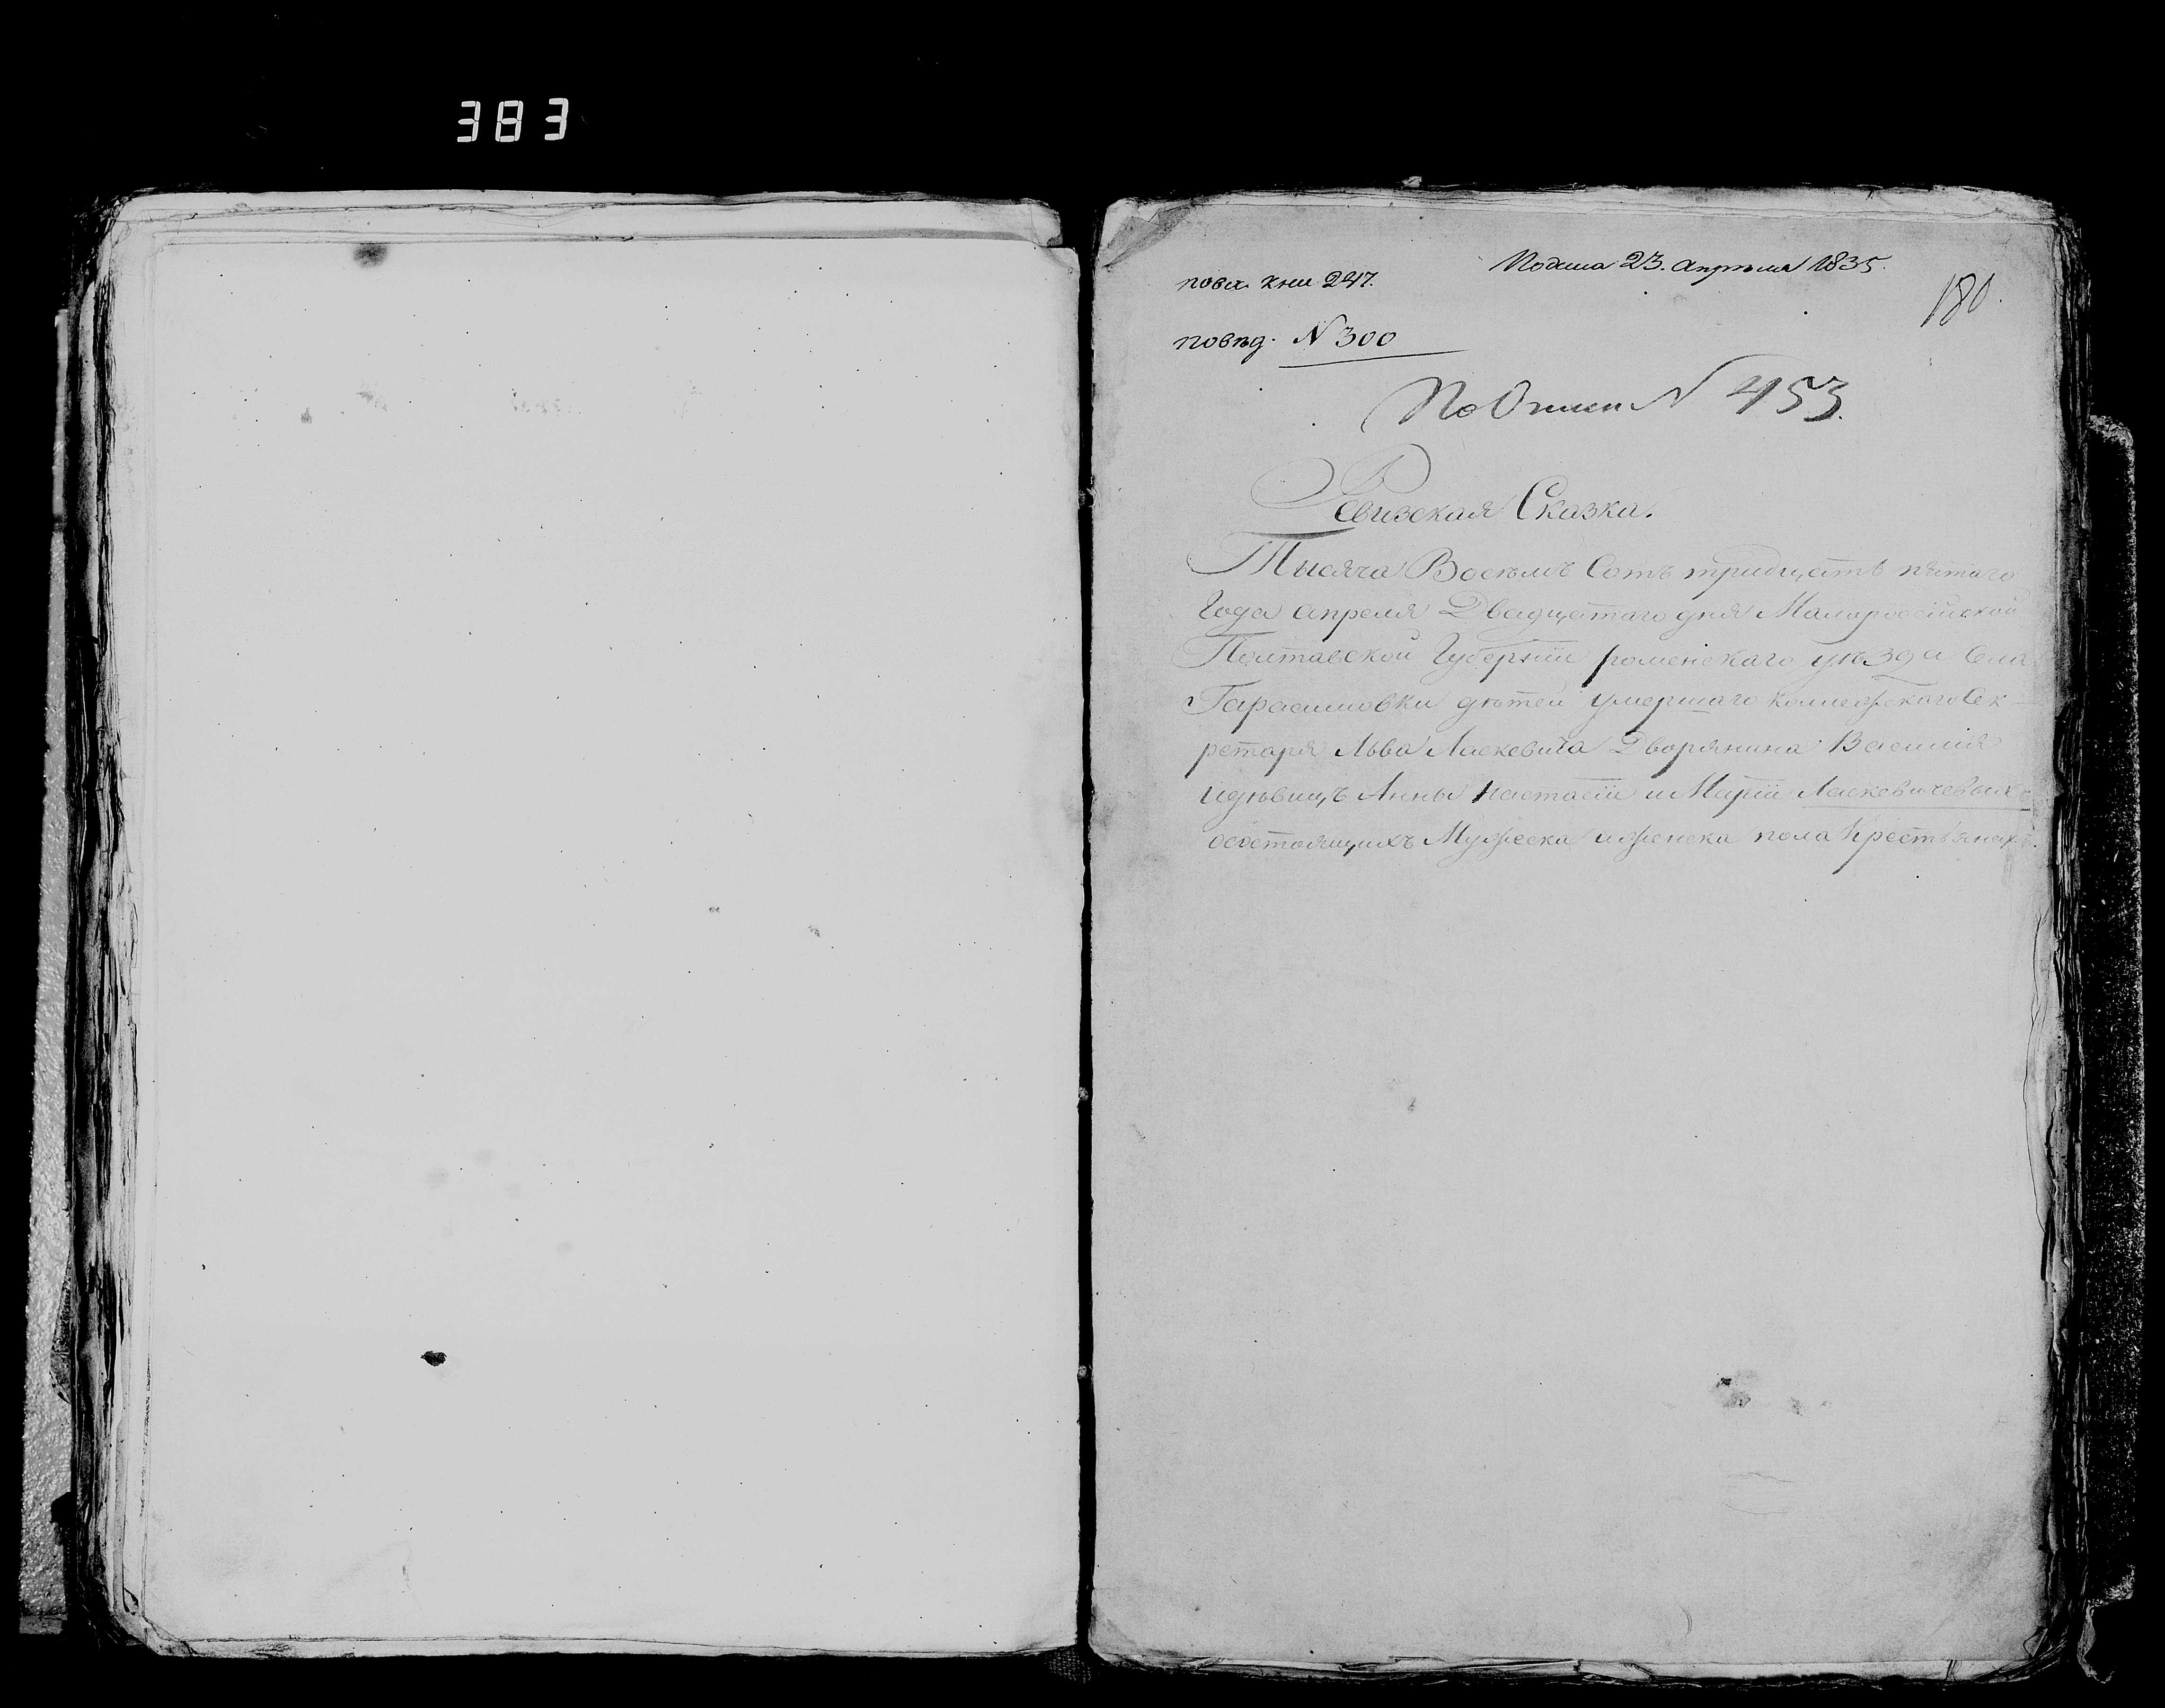 383
Подана 23. Апрѣля 1835.
180.
повх. кни 247.
повѣд. N 300
По Описи N 453.
Ревизская Сказка.
Тысяча Восемъ Сотъ тридцать пятаго
Года апреля Двадцатаго дня Малоросійской
Полтавской Губерніи роменскаго уѣзда Села
Гарасимовки дѣтей умершаго Колежскаго Сек-
ретаря Льва Ласкевича Дворянина Василія
идѣвицъ Анны Настасіи и Маріи Ласкевичевыхъ
осостоящихъ Мужеска иженска пола Крестьянахъ.